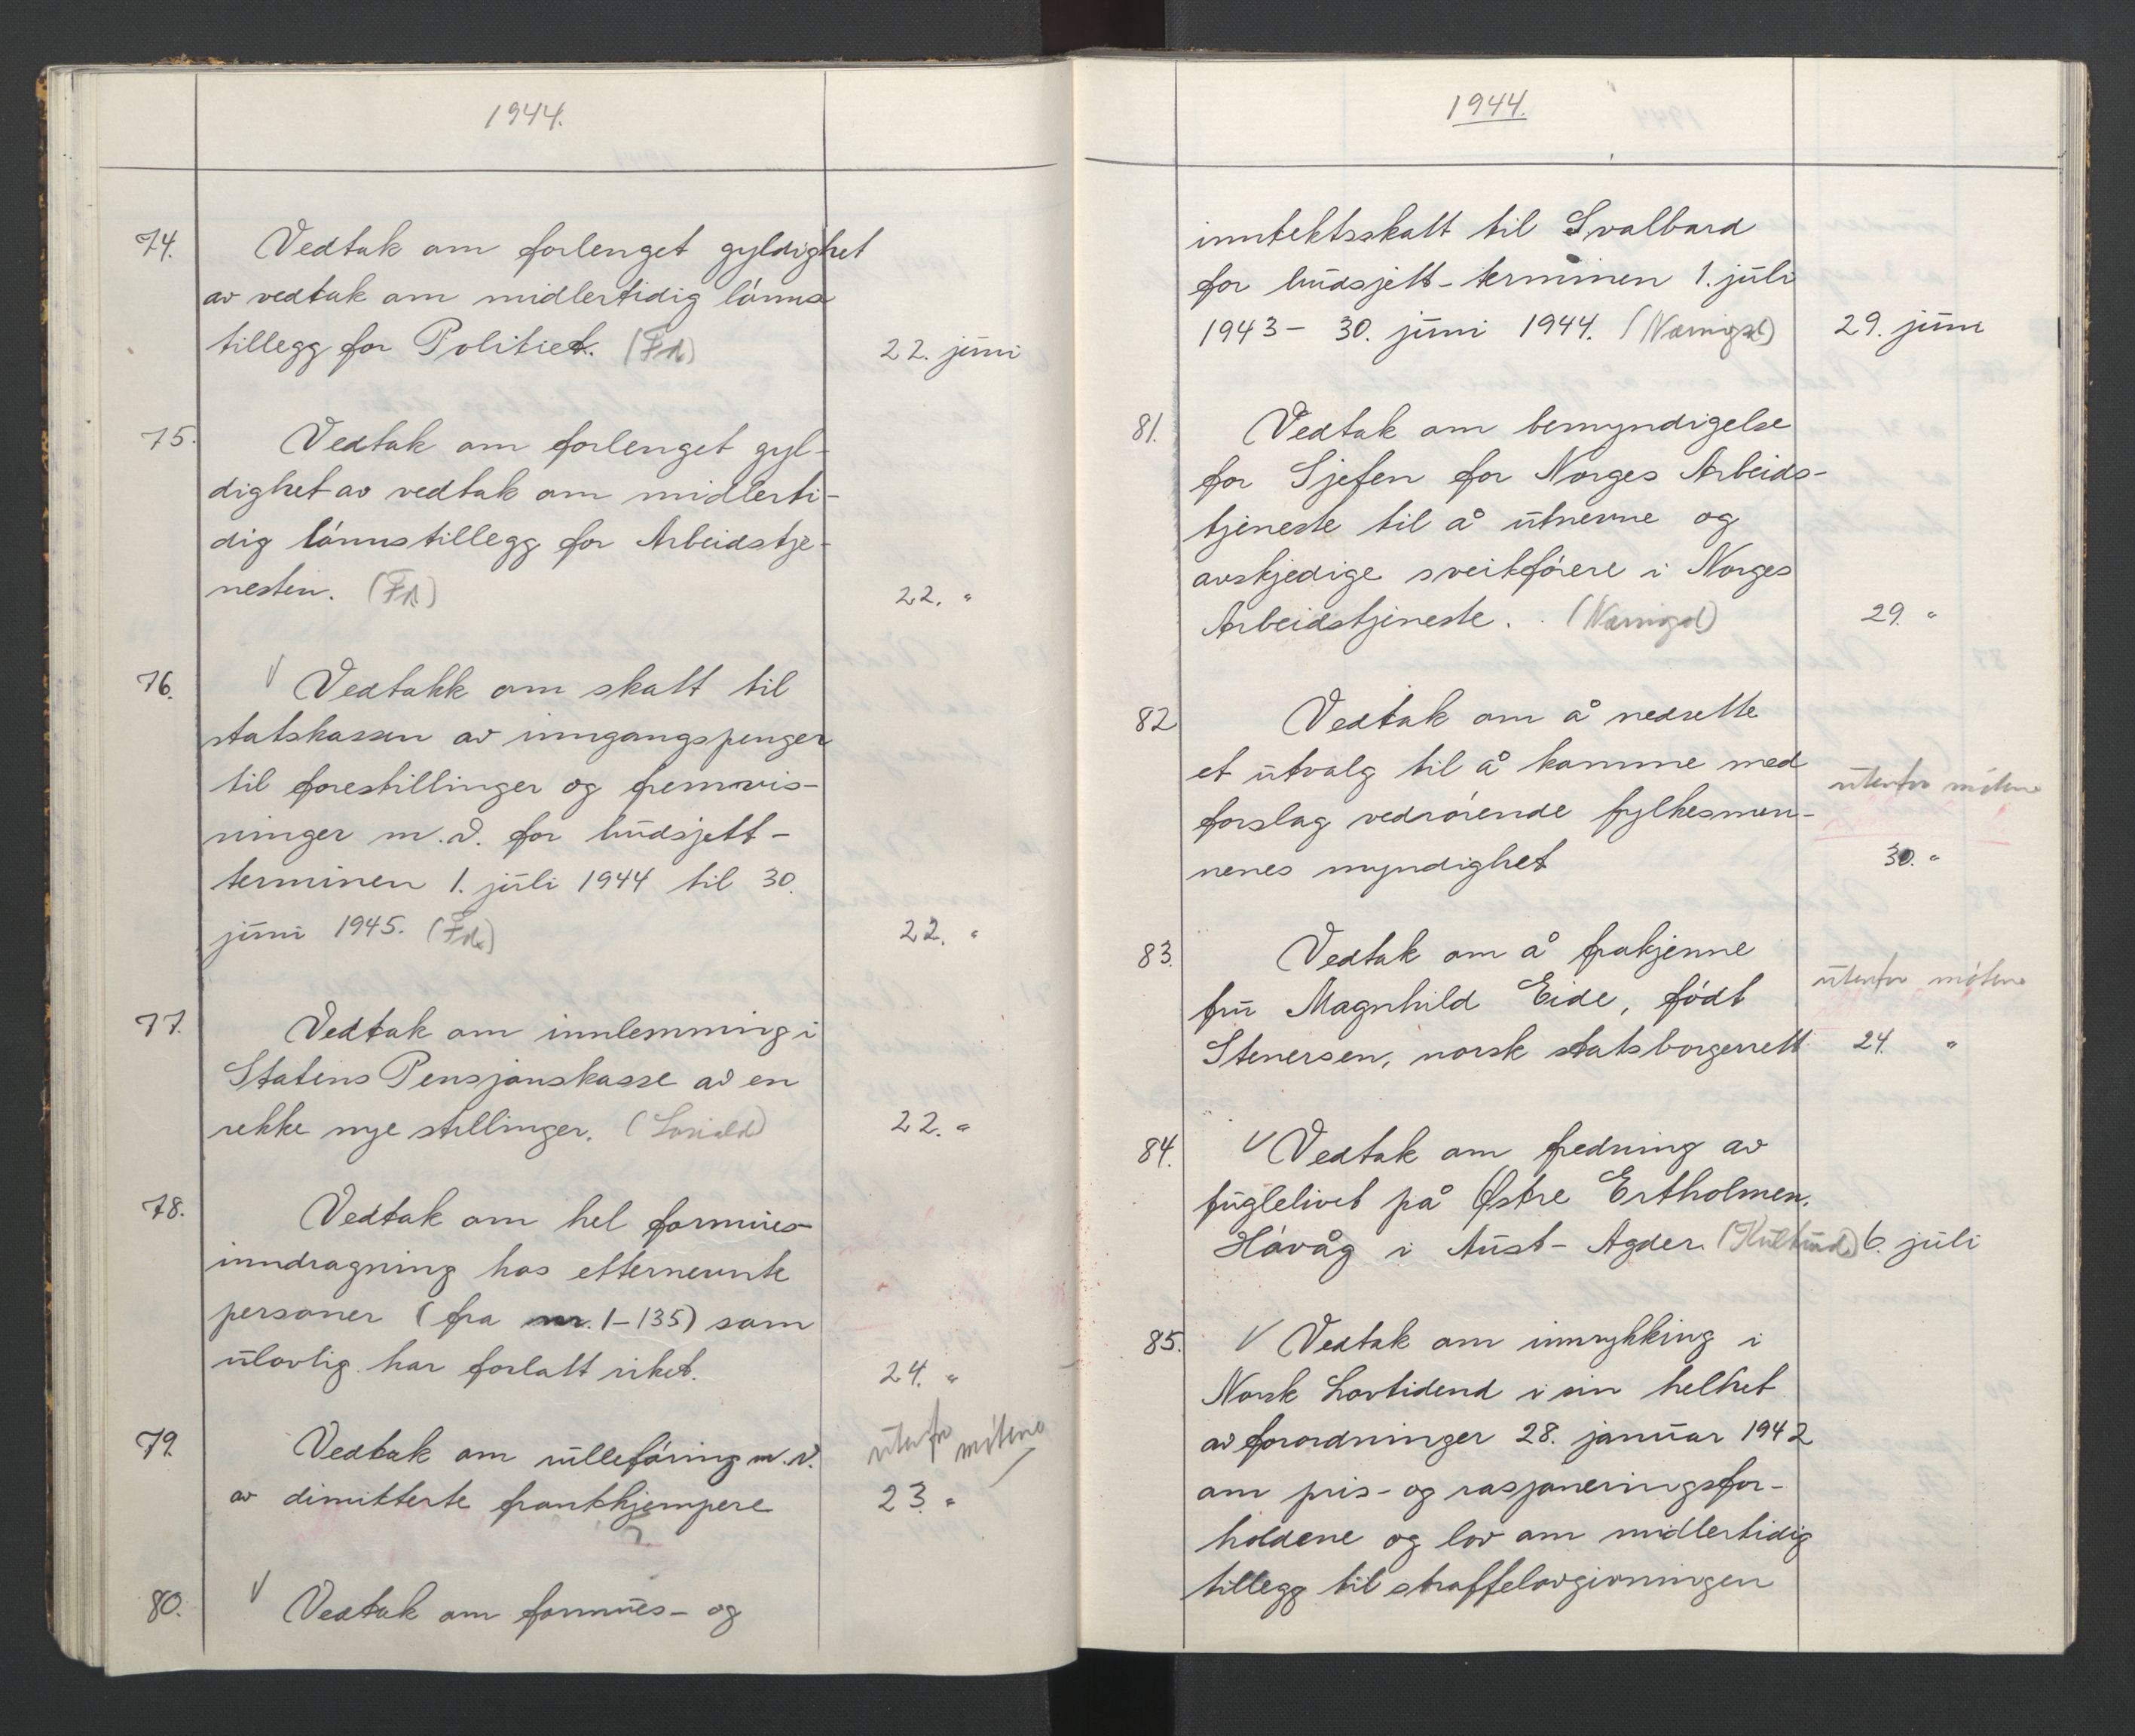 1944.
74. Vedtak om forlenget gyldighet
av vedtak om midlertidig lønns
tillegg for Politiet. (Fd) 22. juni
75. Vedtak om forlenget gyl-
dighet av vedtak om midlerti-
dig lønnstillegg for Arbeidstje-
nesten. (Fd) 22. "
76. √ Vedtakk om skatt til
statskassen av inngangspenger
til forestillinger og fremvis-
ninger m.v. for budsjett-
terminen 1. juli 1944 til 30.
juni 1945. (Fd.) 22. "
77. Vedtak om innlemming i
Statens Pensjonskasse av en
rekke nye stillinger. (Sosiald) 22. "
78. Vedtak om hel formues-
inndragning hos etternevnte
personer (fra nr. 1-135) som
ulovlig har forlatt riket. 24. "
utenfor møtene
79. Vedtak om rulleføring m.v.
av dimitterte frontkjempere 23. "
80. √ Vedtak om formues- og
1944.
inntektsskatt til Svalbard
for budsjett-terminen 1. juli
1943 - 30. juni 1944. (Næringsd) 29. juni
81. Vedtak om bemyndigelse
for Sjefen for Norges Arbeids-
tjeneste til å utnevne og
avskjedige sveitførere i Norges
Arbeidstjeneste. (Næringsd) 29. "
82 Vedtak om å nedsette
et utvalg til å komme med utenfor møtene
forslag vedrørende fylkesmen-
nenes myndighet 30. "
83. Vedtak om å frakjenne
utenfor møtene
fru Magnhild Eide, født
Stenersen, norsk statsborgerrett 24. "
84. √ Vedtak om fredning av
fuglelivet på Østre Ertholmen,
Høvåg i Aust-Agder. (Kulturd.) 6. juli
85. √ Vedtak om innrykking i
Norsk Lovtidend i sin helhet
av forordninger 28. januar 1942
om pris- og rasjoneringsfor-
holdene og lov om midlertidig
tillegg til straffelovgivningen